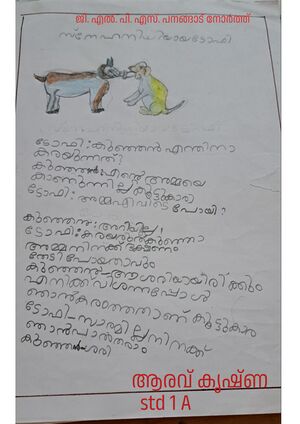 ജി. എൽ. പി. എസ്. പനങ്ങാട് നോർത്ത്
സ്നേഹനിധിയായ ടോഫി
ടോഫി: കുഞ്ഞൻ എന്തിനാ
കരയുന്നത്?
കുഞ്ഞൻ: എന്റെ അമ്മയെ
കാണുന്നില്ല കൂട്ടുകാരാ
ടോഫി: അമ്മ എവിടെ പോയി?
കുഞ്ഞൻ: അറിയില്ല!
ടോഫി: കരയരുത് കുഞ്ഞാ
അമ്മ നിനക്ക് ഭക്ഷണം
തേടി പോയതാവും
കുഞ്ഞൻ-ആ ശരിയായിരിക്കും
എനിക്ക് വിശന്നപ്പോൾ
ഞാൻ കരഞ്ഞതാണ് കൂട്ടുകാരാ
ടോഫി-സാരമില്ല നിനക്ക്
ഞാൻ പാൽ തരാം
കുഞ്ഞൻ-ശരി
ആരവ് കൃഷ്ണ
std 1 A